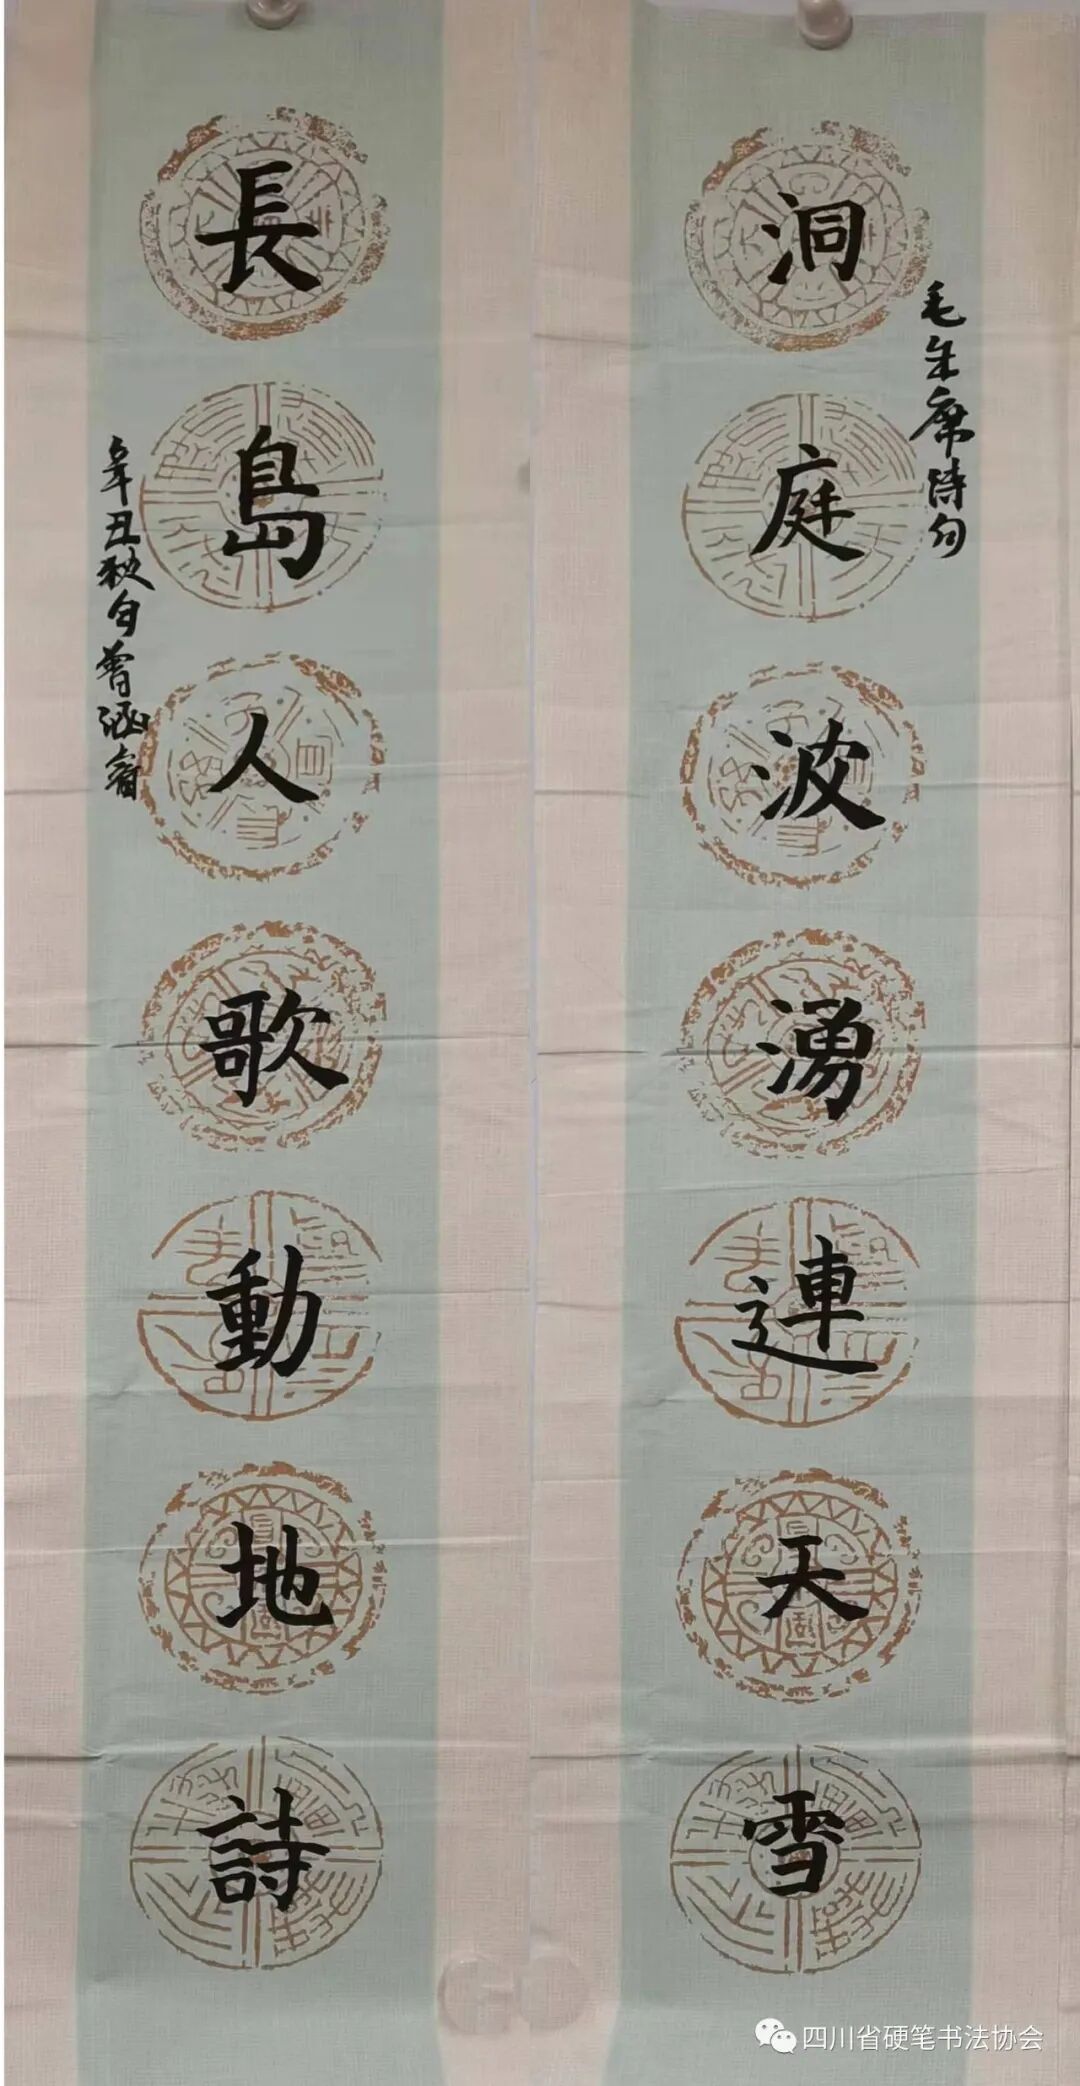 洞庭波湧連天雪
毛主席詩句
長島人歌動地詩
辛丑秋月曾涵睿
四川省硬笔书法协会